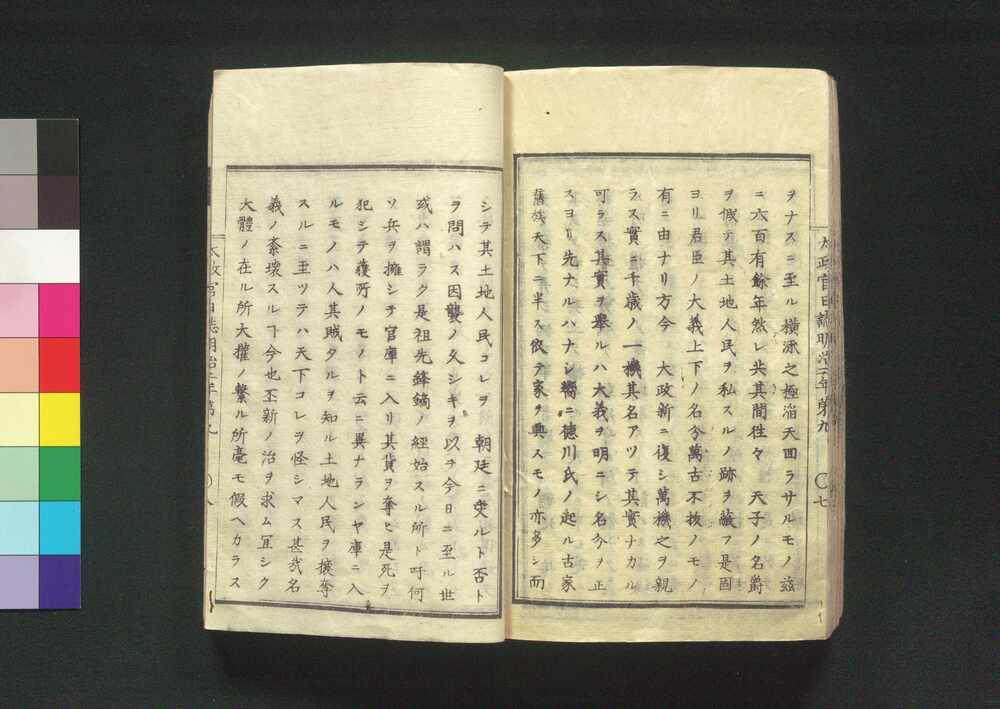 ヲナスニ至ル横流之極滔天回ラサルモノ茲
ニ六百有餘年然レ共其間往々　天子ノ名爵
ヲ假テ其土地人民ヲ私スルノ跡ヲ蔽フ是固
ヨリ君臣ノ大義上下ノ名分萬古不抜ノモノ
有ニ由ナリ方今　大政新ニ復シ萬機之ヲ親
ラス實ニ千歳ノ一機其名アツテ其實ナカル
可ラス其實ヲ舉ルハ大義ヲ明ニシ名分ヲ正
スヨリ先ナルハナシ嚮ニ徳川氏ノ起ル古家
舊族天下ニ半ス依テ家ヲ興スモノ亦多シ而
太政官日誌明治二年第九　〇七
シテ其土地人民コレヲ　朝廷ニ受ルト否ト
ヲ問ハス因襲ノ久シキヲ以テ今日ニ至ル世
或ハ謂ラク是祖先鋒鏑ノ經始スル所ト吁何
ソ兵ヲ擁シテ官庫ニ入リ其貨ヲ奪ヒ是死ヲ
犯シテ獲所ノモノト云ニ異ナランヤ庫ニ入
ルモノハ人其賊タルヲ知ル土地人民ヲ攘奪
スルニ至ツテハ天下コレヲ怪シマス甚哉名
義ノ紊壊スルヿ今也丕新ノ治ヲ求ム宜シク
大體ノ在ル所大權ノ繋ル所毫モ假ヘカラス
太政官日誌明治二年第九　〇八